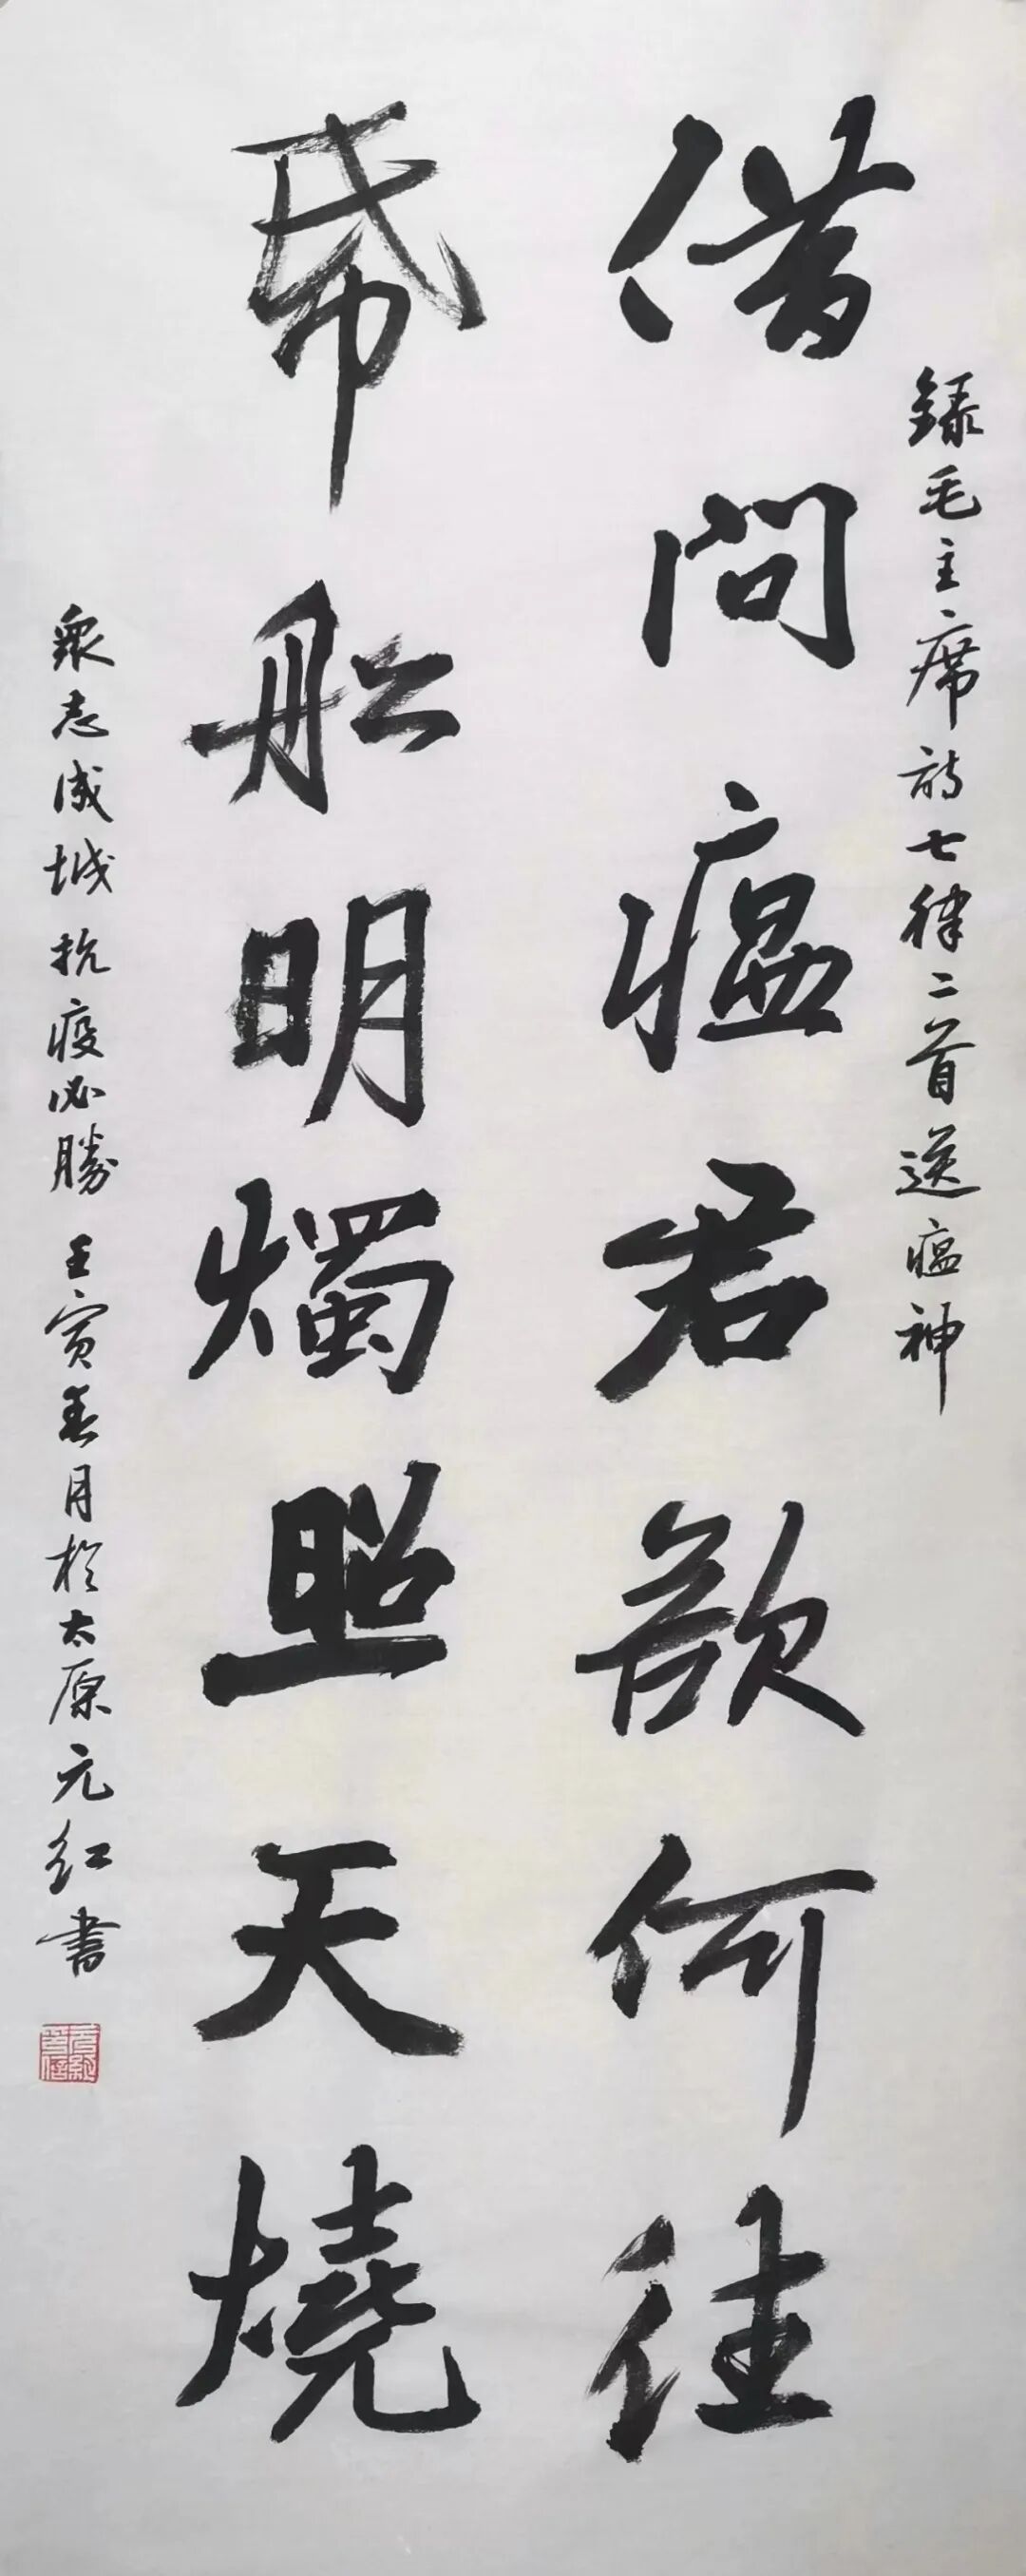 録毛主席詩七律二首送瘟神
借問瘟君欲何往
帋舩明燭照天燒
衆志成城抗疫必勝 壬寅春月於太原元紅書